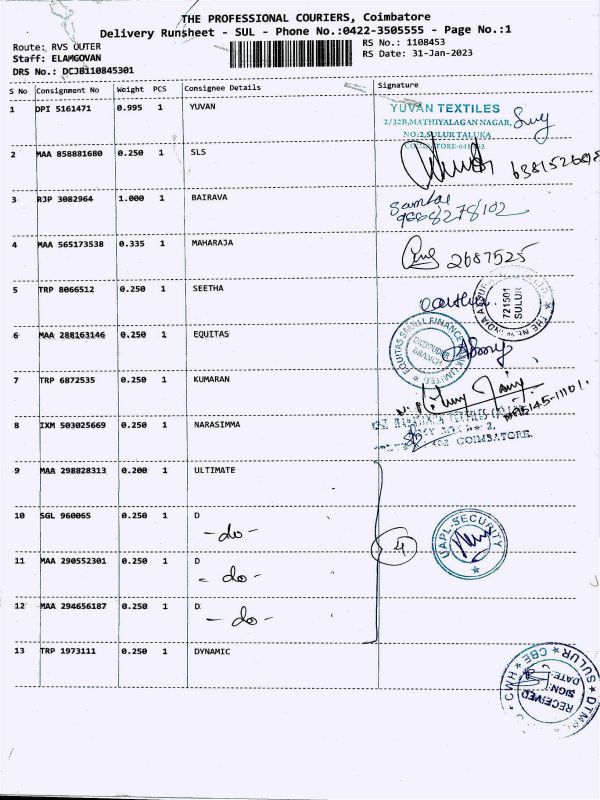 THE PROFESSIONAL COURIERS, Coimbatore
Delivery Runsheet - SUL - Phone No.:0422-3505555 - Page No.:1
Route: RVS OUTER
RS No.: 1108453
Staff: ELAMGOVAN
RS Date: 31-Jan-2023
DRS No.: DCJB110845301
S No Consignment No Weight PCS Consignee Details Signature
1 DPI 5161471 0.995 1 YUVAN
YUVAN TEXTILES
2/32B,MATHIYALAGAN NAGAR,
NO:2,SULUR TALUKA
2 MAA 858881680 0.250 1 SLS
3 RJP 3082964 1.000 1 BAIRAVA
4 MAA 565173538 0.335 1 MAHARAJA
2687525
5 TRP 8066512 0.250 1 SEETHA
721501
SULUR
6 MAA 288163146 0.250 1 EQUITAS
EQUITAS SMALL FINANCE BANK LIMITED
BRANCH
7 TRP 6872535 0.250 1 KUMARAN
8 IXM 503025669 0.250 1 NARASIMMA
COIMBATORE.
9 MAA 298828313 0.200 1 ULTIMATE
10 SGL 960065 0.250 1 D
- do -
UAPL-SECURITY
11 MAA 290552301 0.250 1 D
- do -
4
12 MAA 294656187 0.250 1 D
- do -
13 TRP 1973111 0.250 1 DYNAMIC
CWH ★ CBE ★ SULUR ★
DATE:
SIGN:
RECEIVED